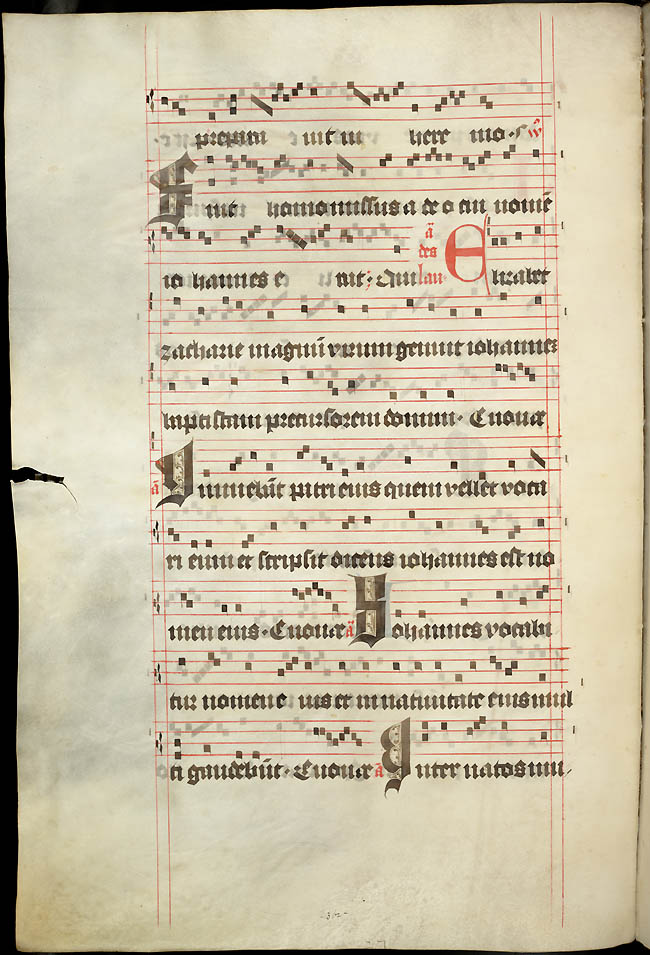 prepara uit in here mo. v̄
Fuit homo missus a deo cui nomē
io hannes e rat; Qui lau des ā Elizabet
zacharie magnū virum genuit iohannez
baptistam precursorem domini. Euouae
ā Innuebāt patri eius quem vellet voca
ri eum et scripsit dicens iohannes est no
men eius. Euouae ā Iohannes vocabi
tur nomen e ius et in natiuitate eius mul
ti gaudebūt. Euouae ā Inter natos mu